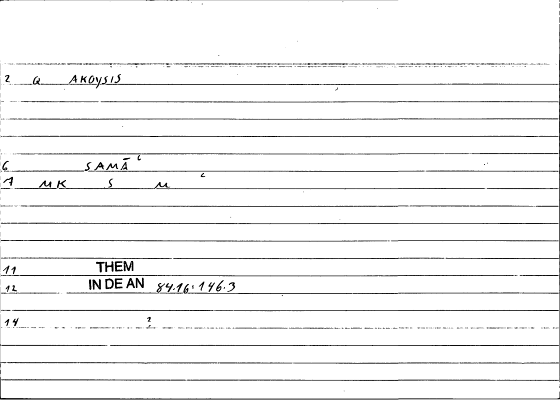 2 Q AKOYSIS
6 SAMĀ c
7 MK S M c
11 THEM
12 IN DE AN 84.16:146.3
14 2